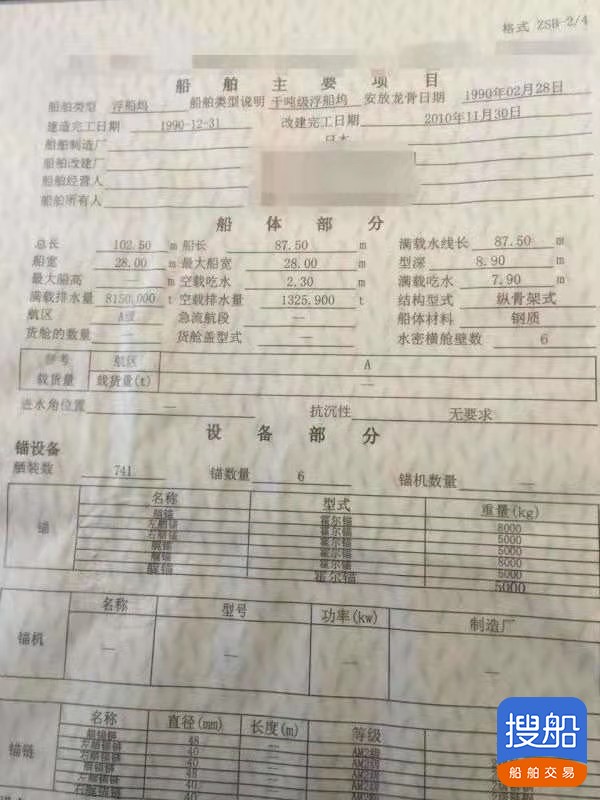 格式 ZSB-2/4
船舶主要项目
船舶类型 浮船坞 船舶类型说明 千吨级浮船坞 安放龙骨日期 1990年02月28日
建造完工日期 1990-12-31 改建完工日期 2010年11月30日
船舶制造厂
船舶改建厂
船舶经营人
船舶所有人
船体部分
总长 102.50 m 船长 87.50 m 满载水线长 87.50 m
船宽 28.00 m 最大船宽 28.00 m 型深 8.90 m
最大船高 — m 空载吃水 2.30 m 满载吃水 7.90 m
满载排水量 8150.000 t 空载排水量 1325.900 t 结构型式 纵骨架式
航区 A级 急流航段 — 船体材料 钢质
货舱的数量 — 货舱盖型式 — 水密横舱壁数 6
航区 A
载货量 载货量(t)
进水角位置 — 抗沉性 无要求
设备部分
锚设备
舾装数 741 锚数量 6 锚机数量 —
名称 型式 重量(kg)
锚
霍尔锚 8000
霍尔锚 5000
霍尔锚 5000
霍尔锚 8000
霍尔锚 5000
霍尔锚 5000
名称 型号 功率(kw) 制造厂
锚机 — — — —
名称 直径(mm) 长度(m) 等级
锚链
48 — AM2级
40 — AM2级
40 — AM2级
48 — AM2级
40 — AM2级
40
搜船
船舶交易